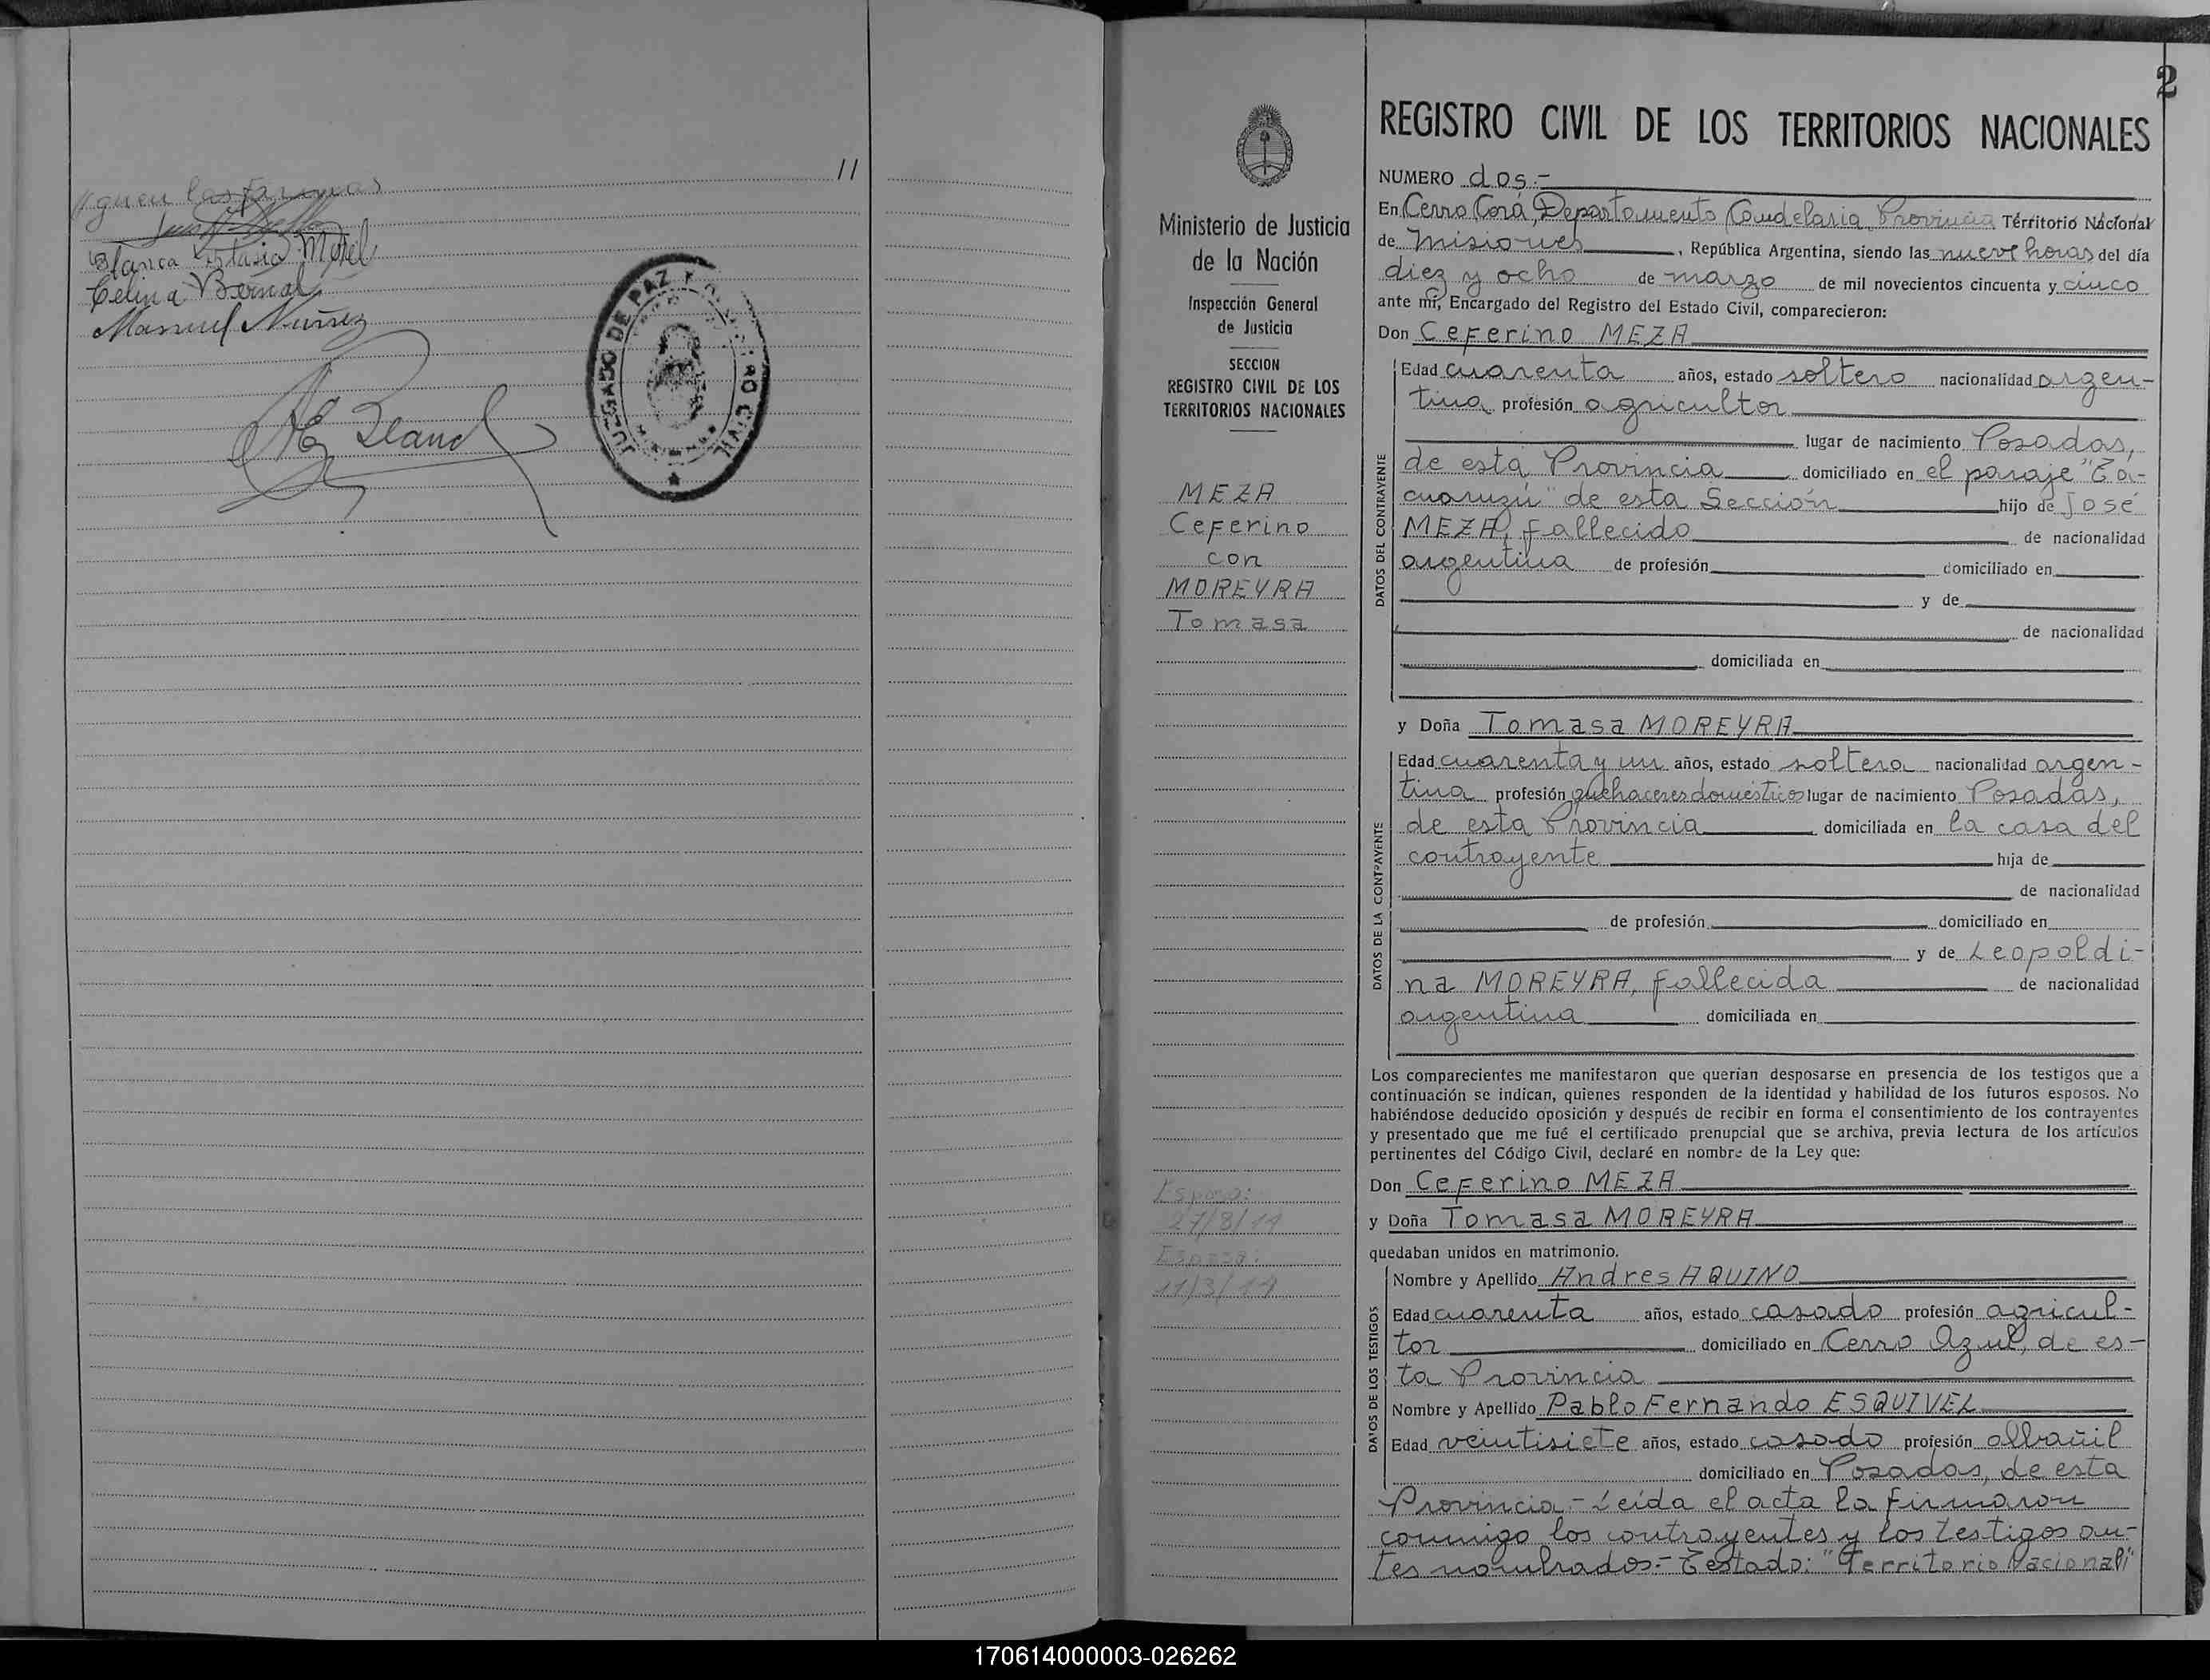 11
guen las firmas
Blanca Morel
Celina Bernal
Manuel Nuñez
JUZGADO DE PAZ RO CIVIL
Ministerio de Justicia
de la Nación
Inspección General
de Justicia
SECCION
REGISTRO CIVIL DE LOS
TERRITORIOS NACIONALES
MEZA
Ceferino
con
MOREYRA
Tomasa
Esposo:
Esposa:
11/3/14
2
REGISTRO CIVIL DE LOS TERRITORIOS NACIONALES
NUMERO dos.-
En Cerro Corá, Departamento Candelaria, Provincia Territorio Nacional
de Misiones, República Argentina, siendo las nueve horas del día
diez y ocho de marzo de mil novecientos cincuenta y cinco
ante mí, Encargado del Registro del Estado Civil, comparecieron:
Don Ceferino MEZA
DATOS DEL CONTRAYENTE
Edad cuarenta años, estado soltero nacionalidad argen-
tina profesión agricultor
lugar de nacimiento Posadas,
de esta Provincia domiciliado en el paraje "Ta-
cuaruzú" de esta Sección hijo de José
MEZA, fallecido de nacionalidad
argentina de profesión domiciliado en
y de
de nacionalidad
domiciliada en
y Doña Tomasa MOREYRA
DATOS DE LA CONTRAYENTE
Edad cuarenta y un años, estado soltera nacionalidad argen-
tina profesión quehaceres domésticos lugar de nacimiento Posadas,
de esta Provincia domiciliada en la casa del
contrayente hija de
de nacionalidad
de profesión domiciliado en
y de Leopoldi-
na MOREYRA, fallecida de nacionalidad
argentina domiciliada en
Los comparecientes me manifestaron que querían desposarse en presencia de los testigos que a
continuación se indican, quienes responden de la identidad y habilidad de los futuros esposos. No
habiéndose deducido oposición y después de recibir en forma el consentimiento de los contrayentes
y presentado que me fué el certificado prenupcial que se archiva, previa lectura de los artículos
pertinentes del Código Civil, declaré en nombre de la Ley que:
Don Ceferino MEZA
y Doña Tomasa MOREYRA
quedaban unidos en matrimonio.
DATOS DE LOS TESTIGOS
Nombre y Apellido Andres AQUINO
Edad cuarenta años, estado casado profesión agricul-
tor domiciliado en Cerro Azul, de es-
ta Provincia
Nombre y Apellido Pablo Fernando ESQUIVEL
Edad veintisiete años, estado casado profesión albañil
domiciliado en Posadas, de esta
Provincia.- Leída el acta la firmaron
conmigo los contrayentes y los testigos an-
tes nombrados.- Testado: "Territorio Nacional"
170614000003-026262